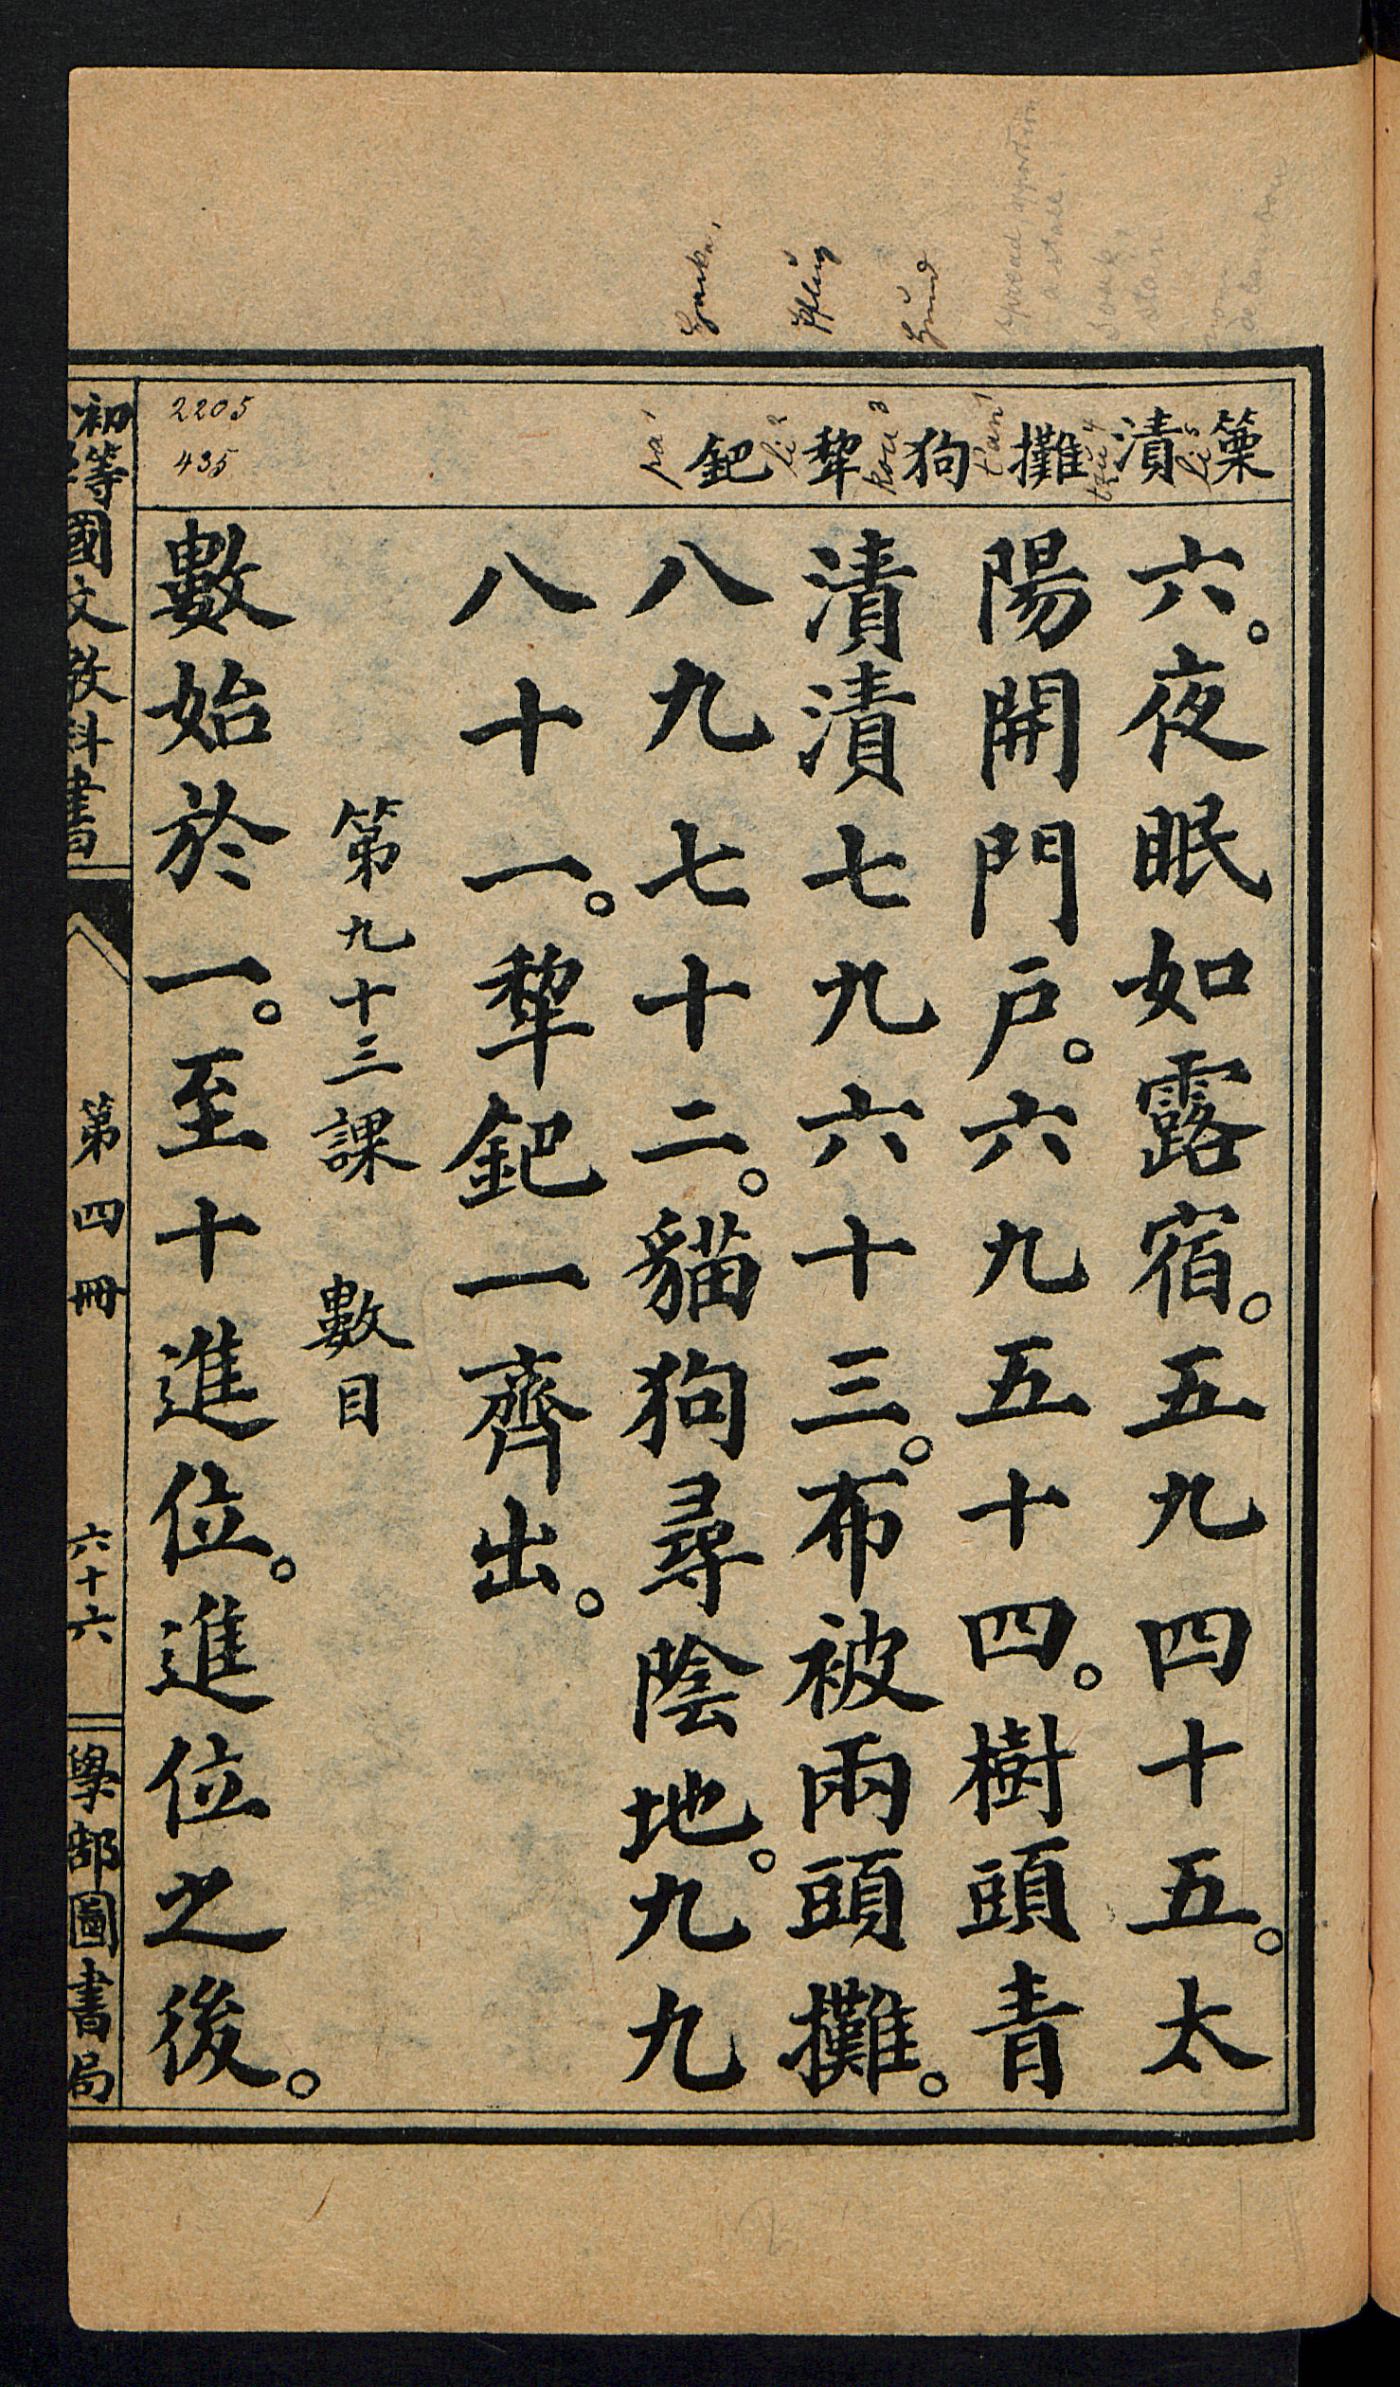 篥漬攤狗犂鈀
六。夜眠如露宿。五九四十五。太
陽開門戶。六九五十四。樹頭青
漬漬七九六十三。布被兩頭攤。
八九七十二。貓狗尋陰地。九九
八十一。犂鈀一齊出。
第九十三課 數目
數始於一。至十進位。進位之後。
初等國文教科書
第四冊
六十六
學部圖書局
2205
435
li5
tzŭ4
t'an1
kou3
li2
pa1
spread, apportion
a stall.
soak
Hund
Pflug